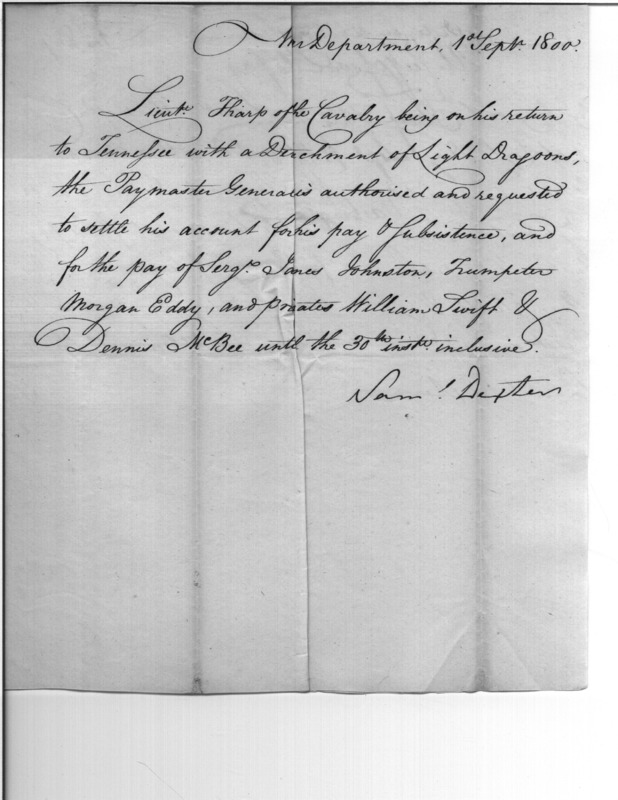 War Department, 1st Septr. 1800.
Lieutt. Tharp of the Cavalry being on his return
to Tennessee with a Detachment of Light Dragoons,
the Paymaster General is authorised and requested
to settle his account for his pay & Subsistence, and
for the pay of Sergt. James Johnston, Trumpeter
Morgan Eddy, and privates William Swift &
Dennis McBee until the 30th instt. inclusive.
Saml. Dexter